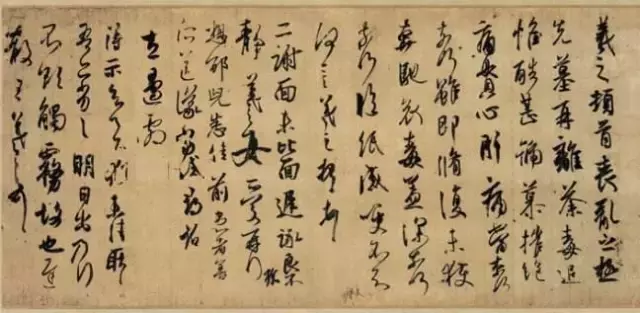 羲之頓首喪亂之極
先墓再離荼毒追
惟酷甚號慕摧絕
痛貫心肝痛當奈何
奈何雖即脩復未獲
奔馳哀毒益深奈何
奈何臨紙感哽不知
何言羲之頓首頓首
二謝面未比面遲詠良不
靜羲之女愛再拜
想邰兒悉佳前患者善
送議當試尋省
左邊劇
得示知足下猶未佳耿耿
吾亦劣劣明日出乃行
不欲觸霧故也遲
散王羲之頓首